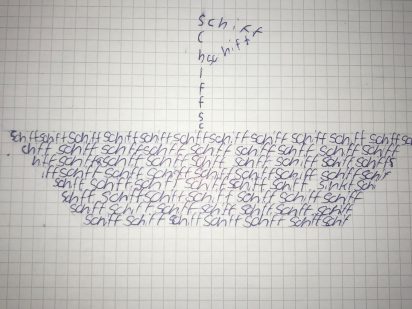 Schiff
c
h schiff
i
f
f
s
c
Schiff Schiff Schiff Schiff Schiff Schiff Schiff Schiff Schiff Schiff Sc
chiff Schiff Schiff Schiff Schiff Schiff Schiff Schiff Schiff Schiff
hiff Schiff Schiff Schiff Schiff Schiff Schiff Schiff Schiff
iff Schiff Schiff Schiff Schiff Schiff Schiff Schiff Schif
Schiff Schiff Schiff Schiff Schiff Schiff sinkt Schi
Schiff Schiff Schiff Schiff Schiff Schiff Schiff Schiff
Schiff Schiff Schiff Schiff Schiff Schiff Schiff
Schiff Schiff Schiff Schiff Schiff Schiff Schif